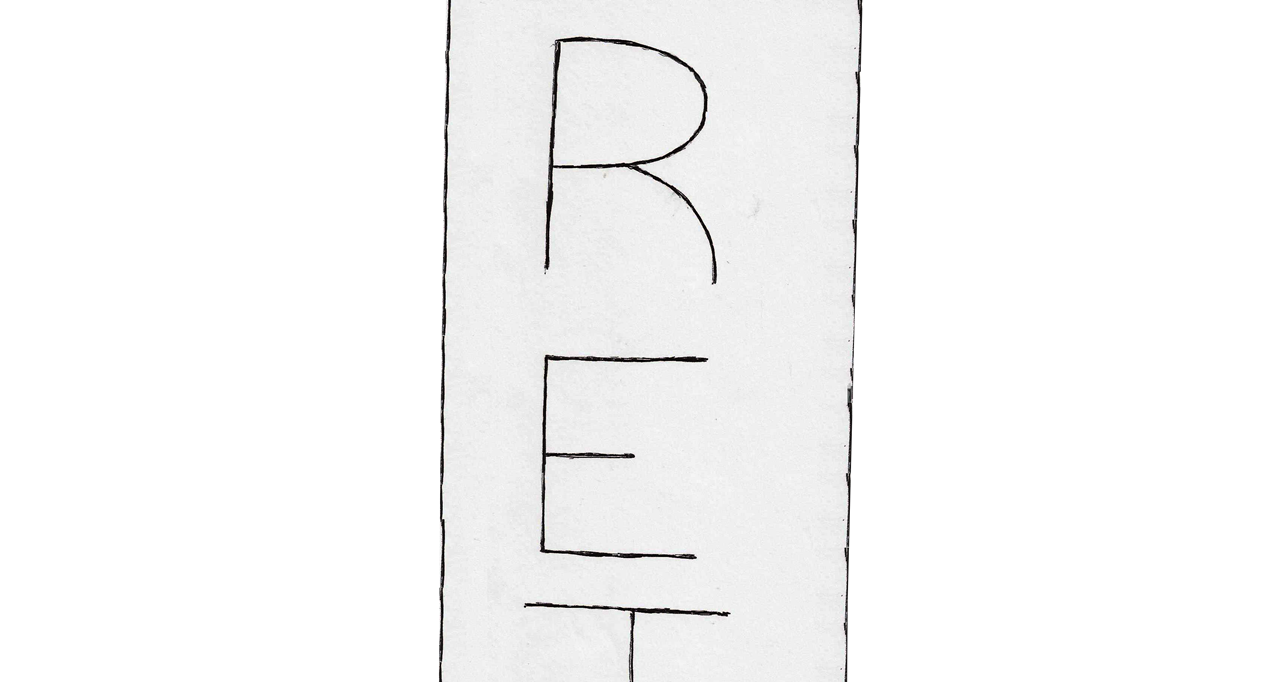 R
E
T